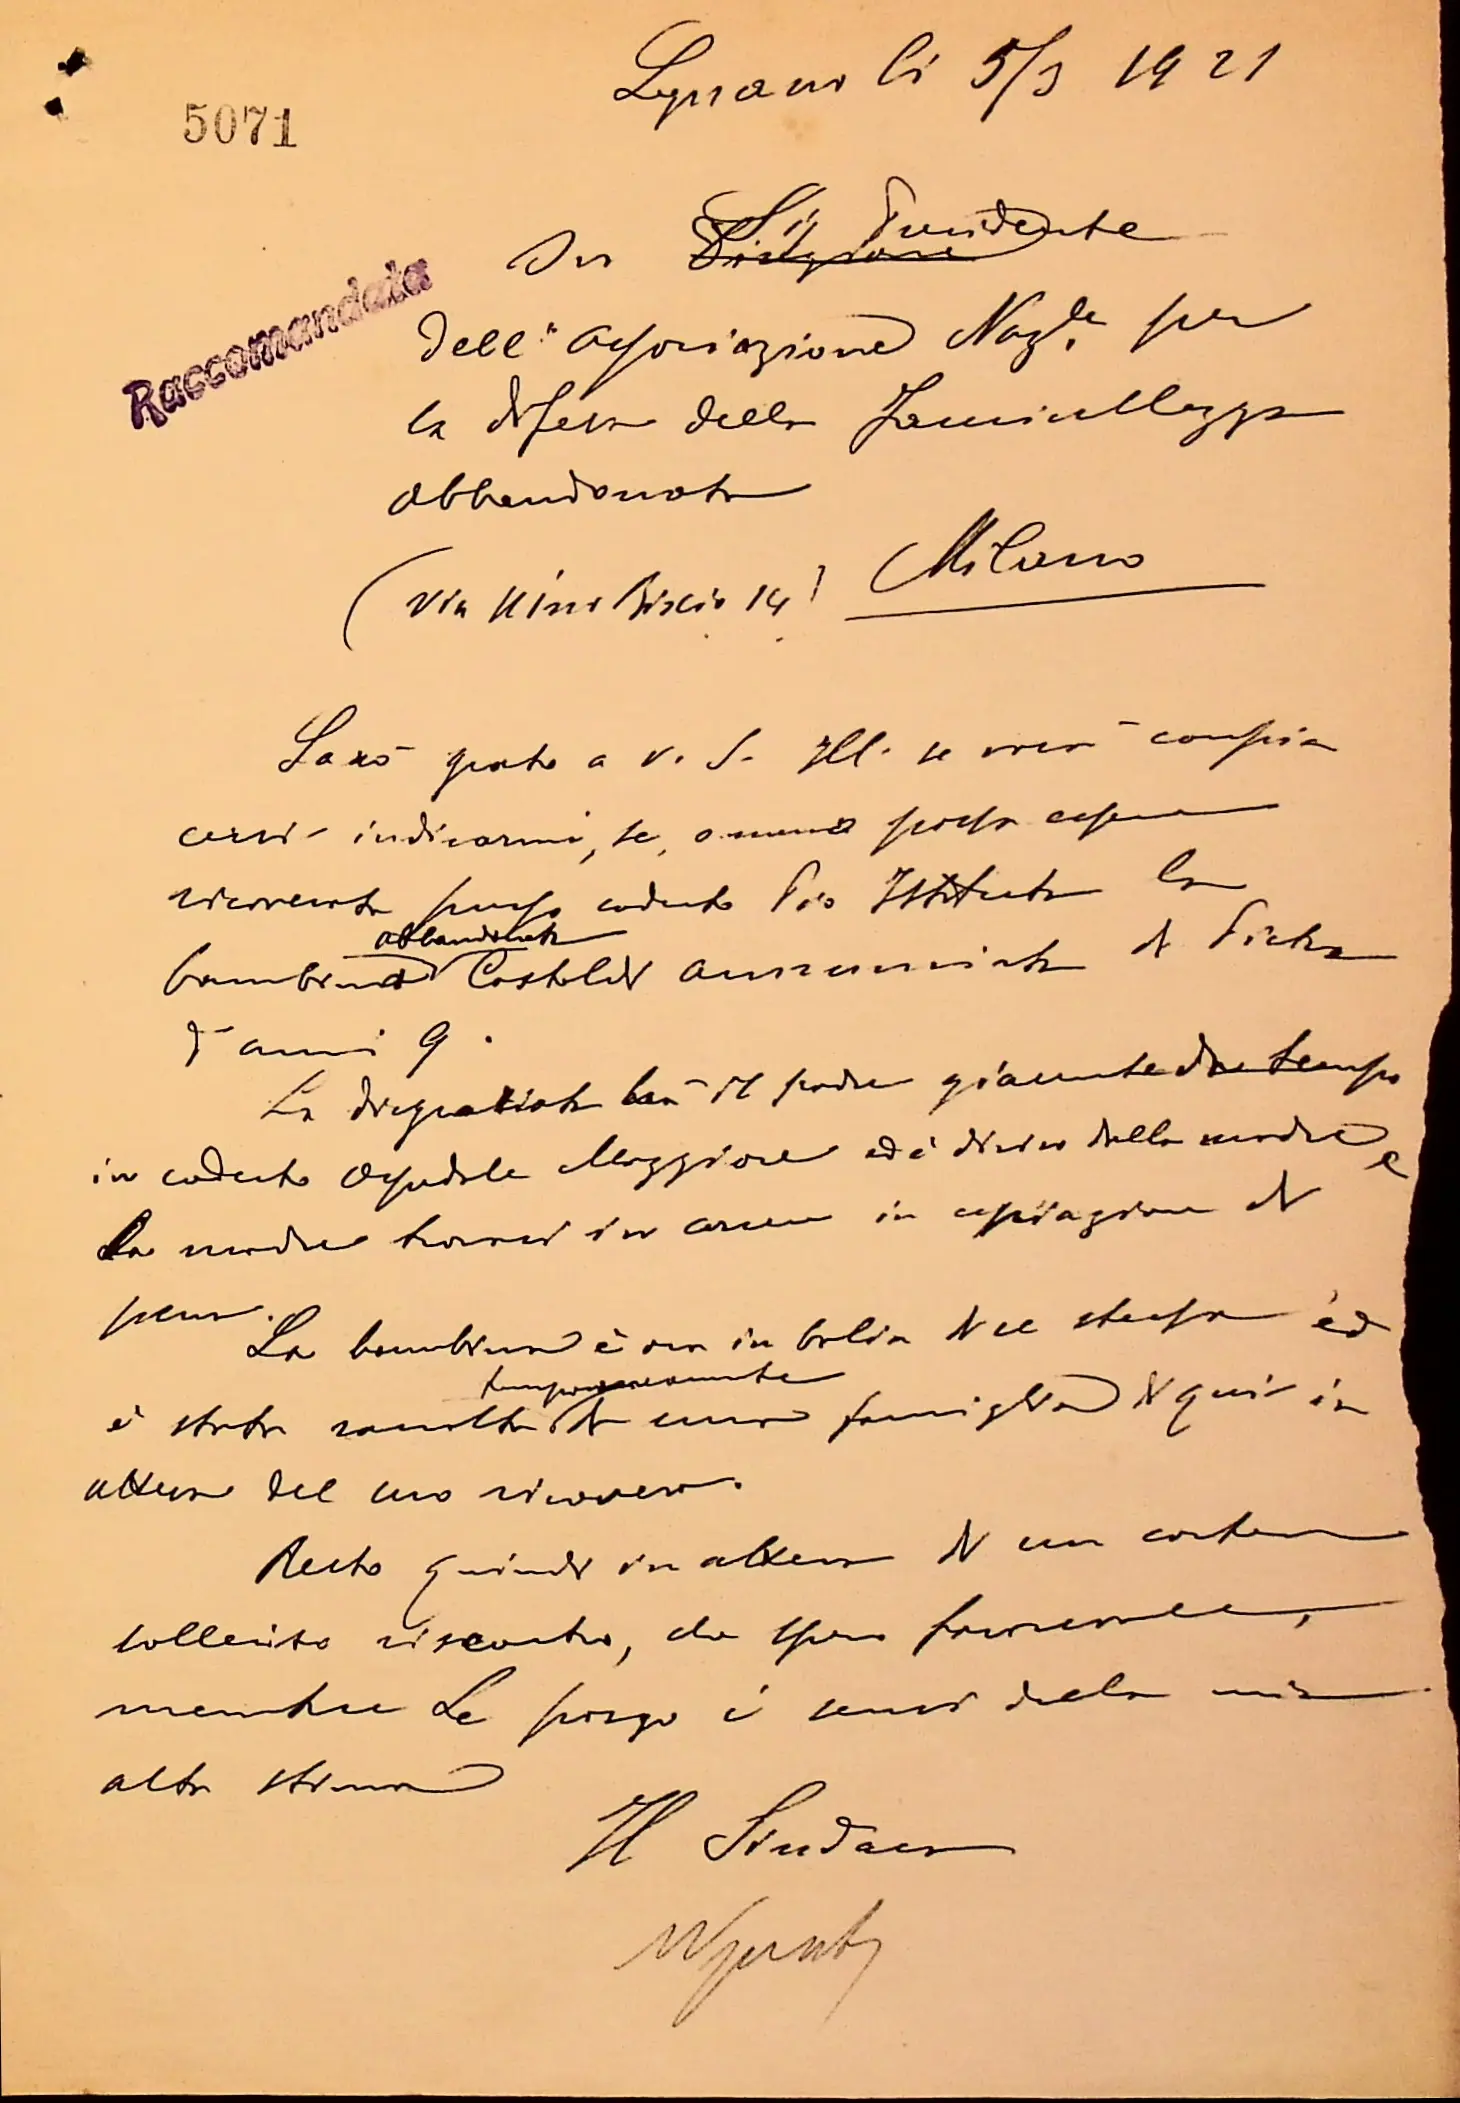 Legnano li 5/3 1921
5071
Raccomandata
Sig Presidente
On Direzione
dell'Associazione Naz.le per
la difesa della Fanciullezza
abbandonata
(Via Nino Bixio 14) Milano
Sarò grato a V. S. Ill. se vorrà compia
cersi indicarmi, se, o meno possa essere
ricoverata presso codesto Pio Istituto la
abbandonata
bambina Castoldi Annunciata di Pietro
d'anni 9.
La disgraziata ha il padre giacente da tempo
in codesto Ospedale Maggiore ed è diviso dalla madre e
la madre trovasi in carcere in espiazione di
pena.
La bambina è ora in balia di se stessa ed
temporaneamente
è stata raccolta da una famiglia di qui in
attesa del suo ricovero.
Resto quindi in attesa di un cortese
sollecito riscontro, che spero favorevole,
mentre Le porgo i sensi della mia
alta stima
Il Sindaco